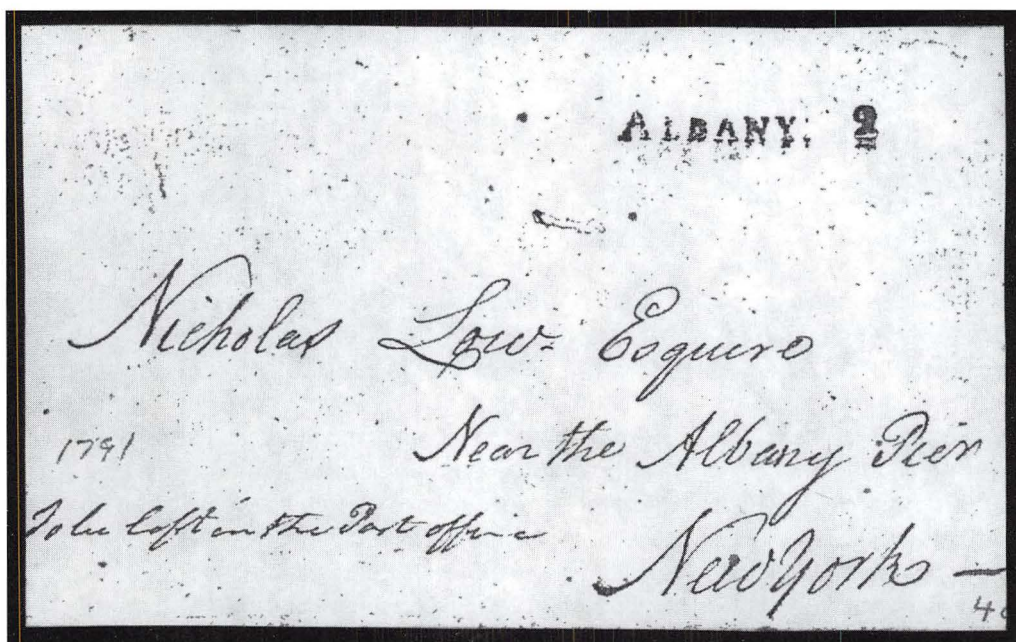 ALBANY. 2
Nicholas Low Esquire
Near the Albany Pier
1791
To be left in the Post office
New York —